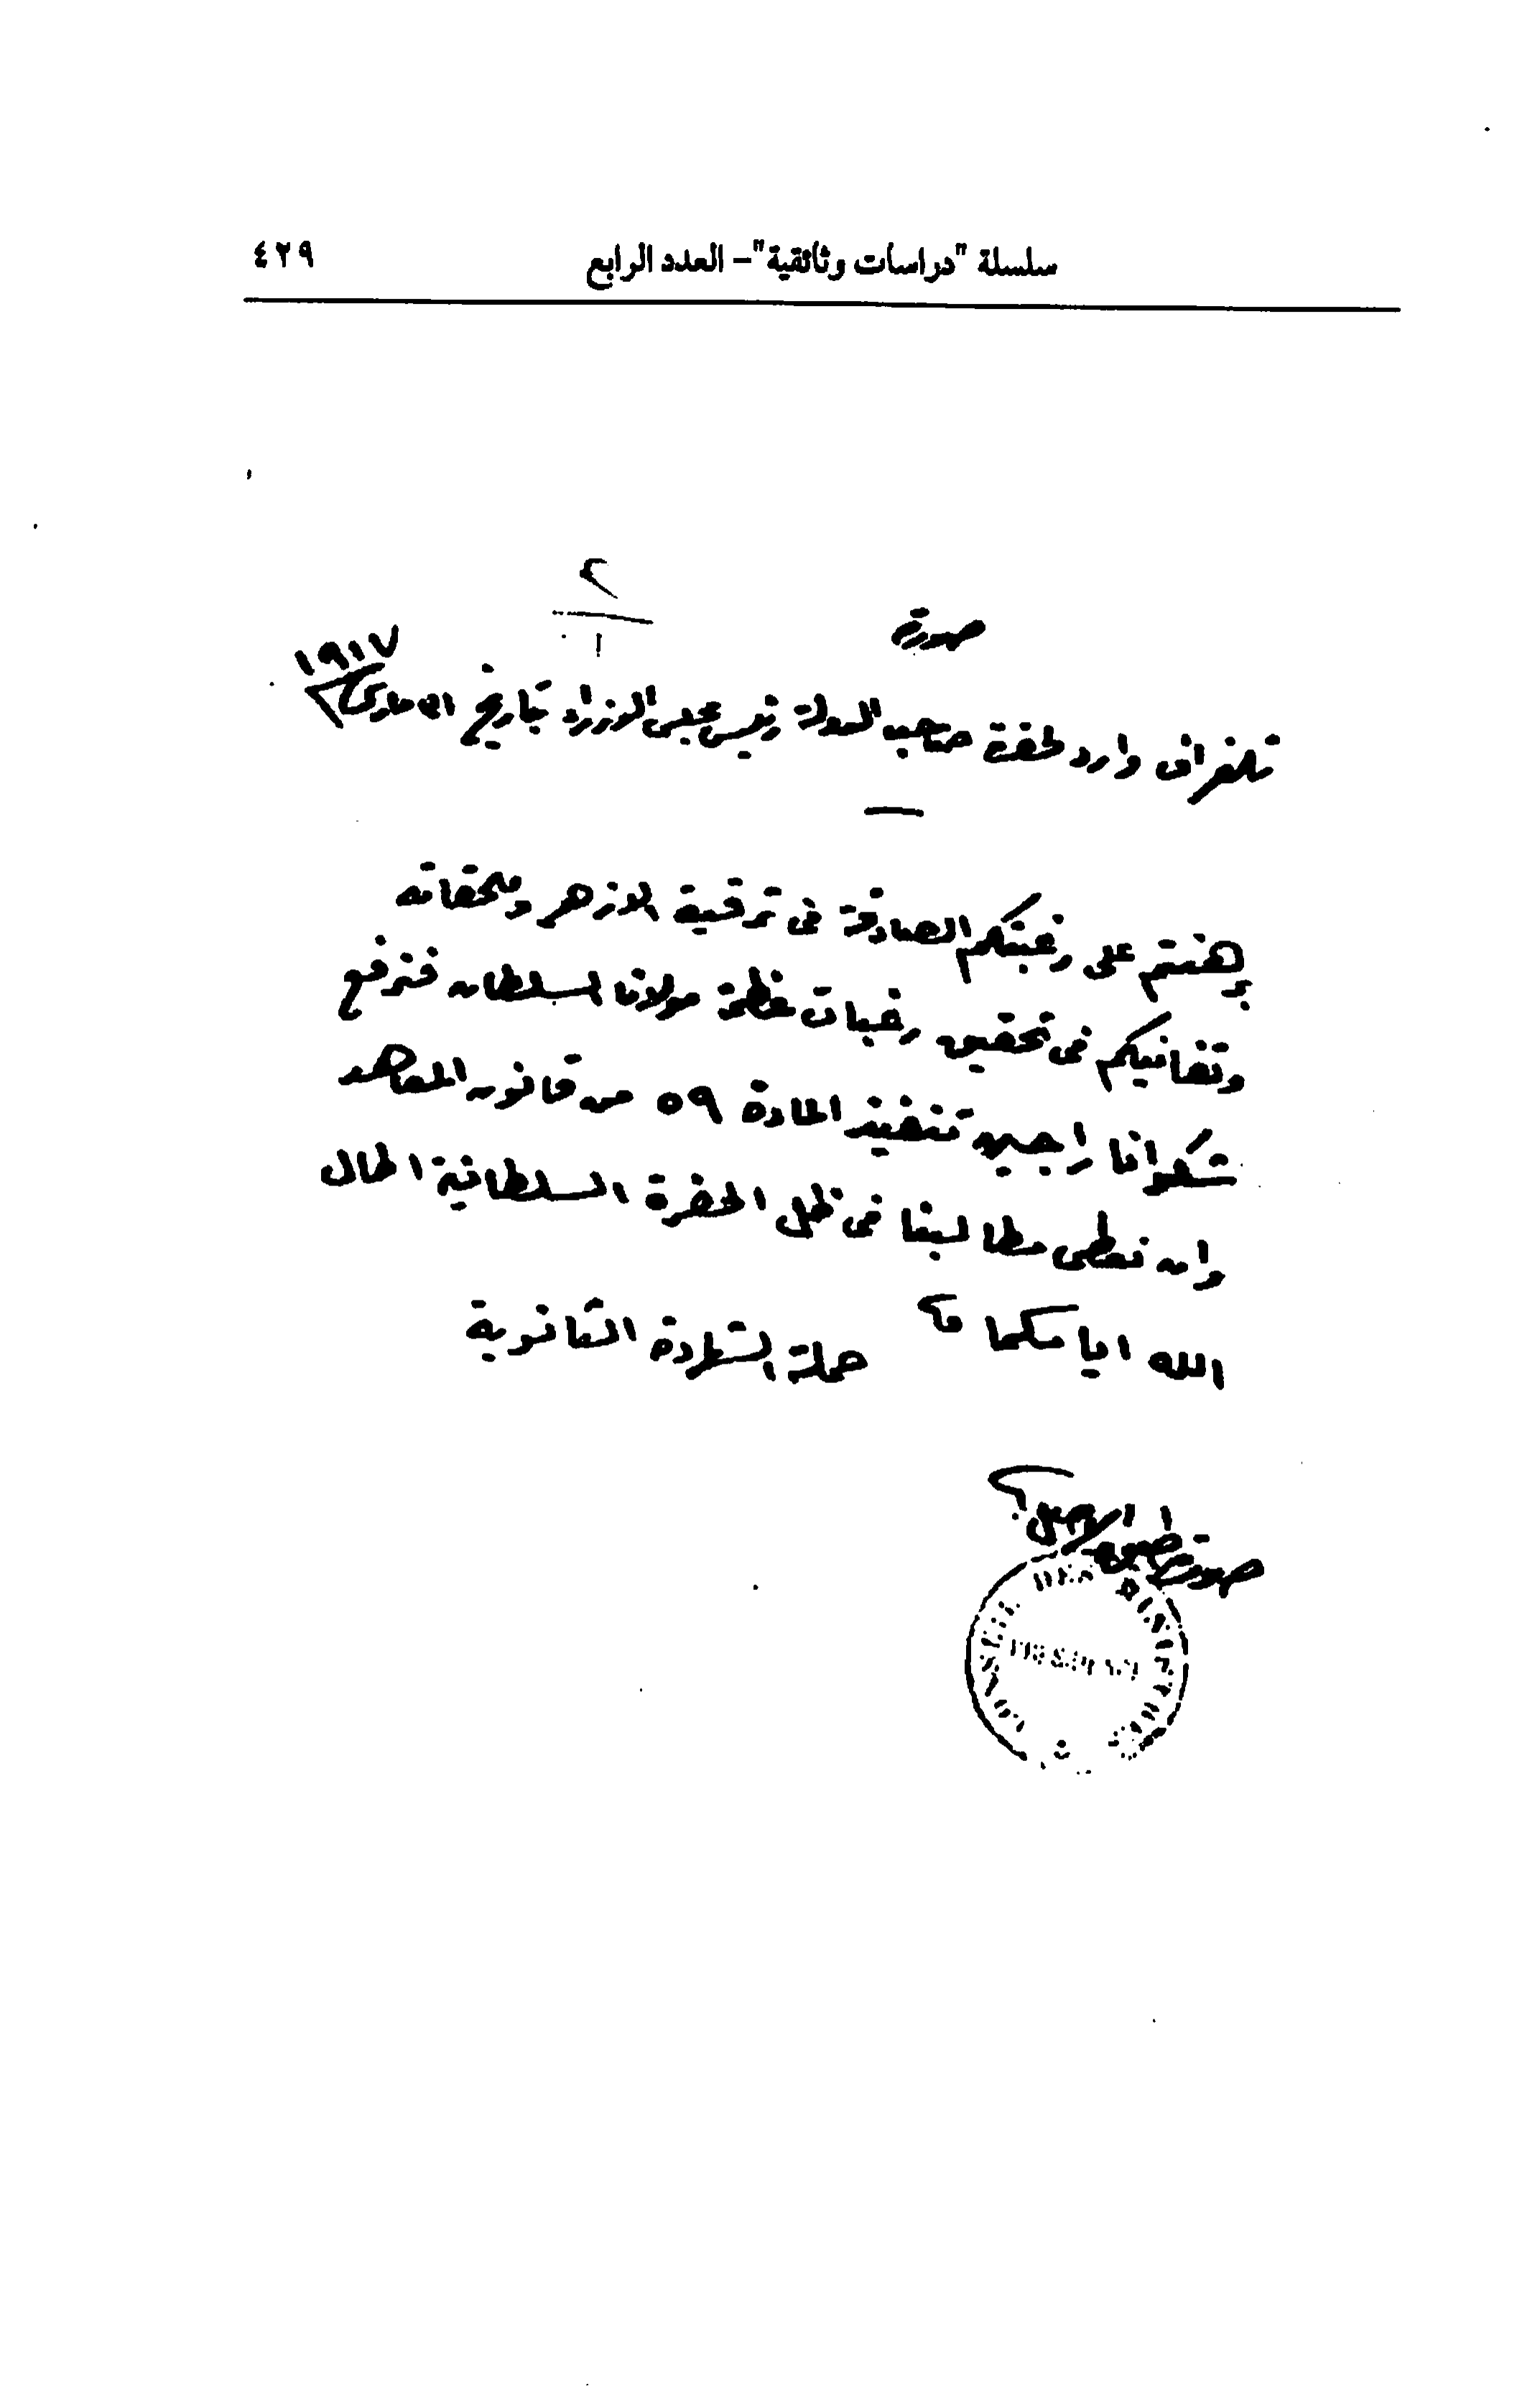 سلسلة "دراسات وثائقية" – العدد الرابع ٤٢٩
٢
١٠
صورة
تلغراف وارد لحضرة صاحب الدولة رئيس مجلس الوزراء بتاريخ مارس ١٩١٧
برهنتم على رغبتكم الصادقة فى ترقية الازهر وملحقاته
وتفانيكم فى تحقيق رغبات عظمة مولانا السلطان فنرفع
شكوانا راجين تنفيذ المادة ٥٩ من قانون المعاهد
وان نعطى مطالبنا فى ظل الحضرة السلطانية اطال
الله ايامكما
حملة الشهادة الثانوية
صورة طبق الاصل